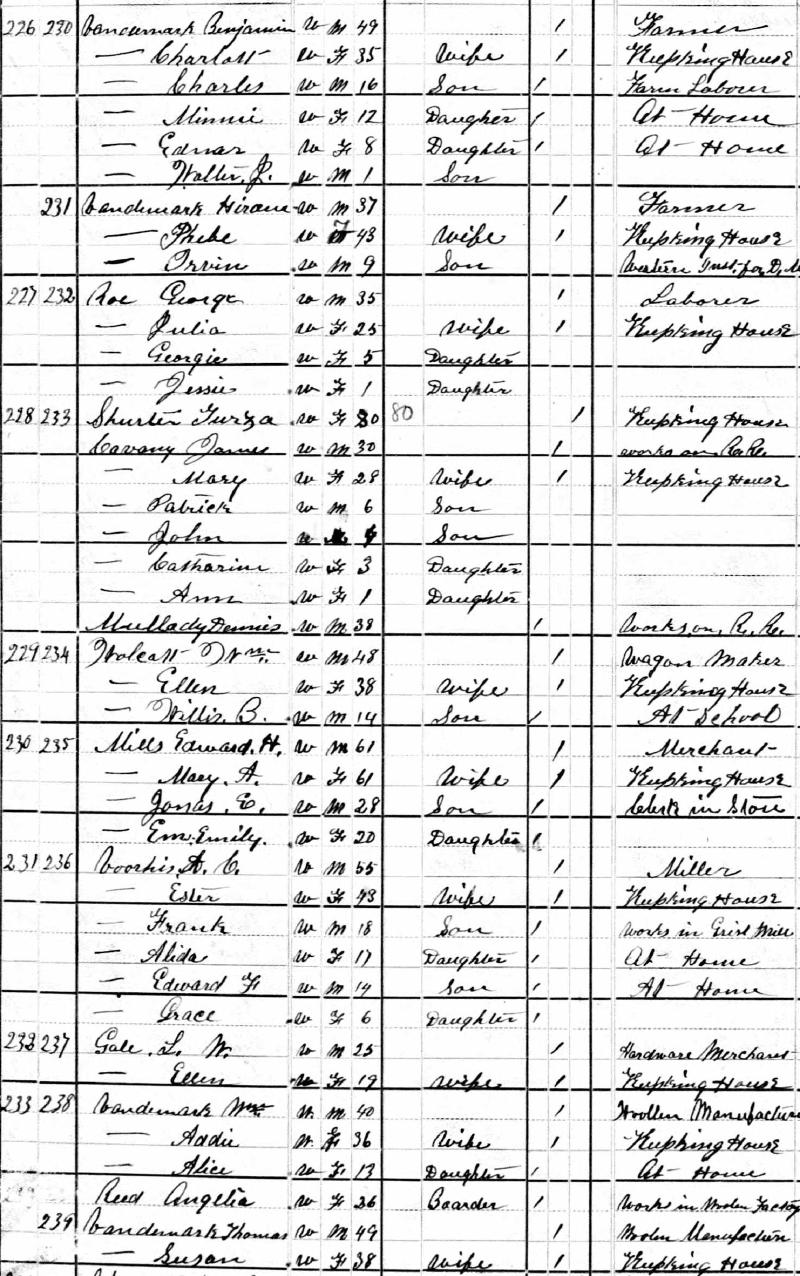 226 230 Vandemark Benjamin W M 49 / Farmer
— Charlott W F 35 Wife / Kepking House
— Charles W M 16 Son / Farm Laborer
— Minnie W F 12 Daugher / At Home
— Ednar W F 8 Daughter / At Home
— Walter J. W M 1 Son
231 Vandemark Hiram W M 37 / Farmer
— Phebe W F 43 Wife / Kepking House
— Irvin W M 9 Son Western Inst. for D. M
227 232 Roe George W M 35 / Laborer
— Julia W F 25 Wife / Kepking House
— Georgie W F 5 Daughter
— Jessie W F 1 Daughter
228 233 Shurter Turza W F 80 80 / Kepking House
Cavany James W M 30 / works on R.R.
— Mary W F 28 Wife / Kepking House
— Patrick W M 6 Son
— John W M Son
— Catharine W F 3 Daughter
— Ann W F 1 Daughter
Mullady Dennis W M 38 / Works on R. R.
229 234 Wolcott Wm. W M 48 / Wagon Maker
— Ellen W F 38 Wife / Kepking House
— Willis B. W M 14 Son / At School
230 235 Mills Edward. H. W M 61 / Merchant
— Mary. A. W F 61 Wife / Kepking House
— Jonas. E. W M 28 Son / Clerk in Store
— Em. Emily. W F 20 Daughter /
231 236 Voorhis. A. C. W M 55 / Miller
— Ester W F 43 Wife / Kepking House
— Frank W M 18 Son / Works in Grist Mill
— Alida W F 17 Daughter / At Home
— Edward F W M 14 Son / At Home
— Grace W F 6 Daughter /
232 237 Gale. L. W. W M 25 / Hardware Merchant
— Ellen W F 19 Wife / Kepking House
233 238 Vandemark Wm. W. M 40 / Woollen Manufacture
— Addie W. F 36 Wife / Kepking House
— Alice W F 13 Daughter / At Home
Reed Angelia W F 26 Boarder / Works in Woolen Factory
239 Vandemark Thomas W M 49 / Woolen Manufacture
— Susan W F 38 Wife / Kepking House